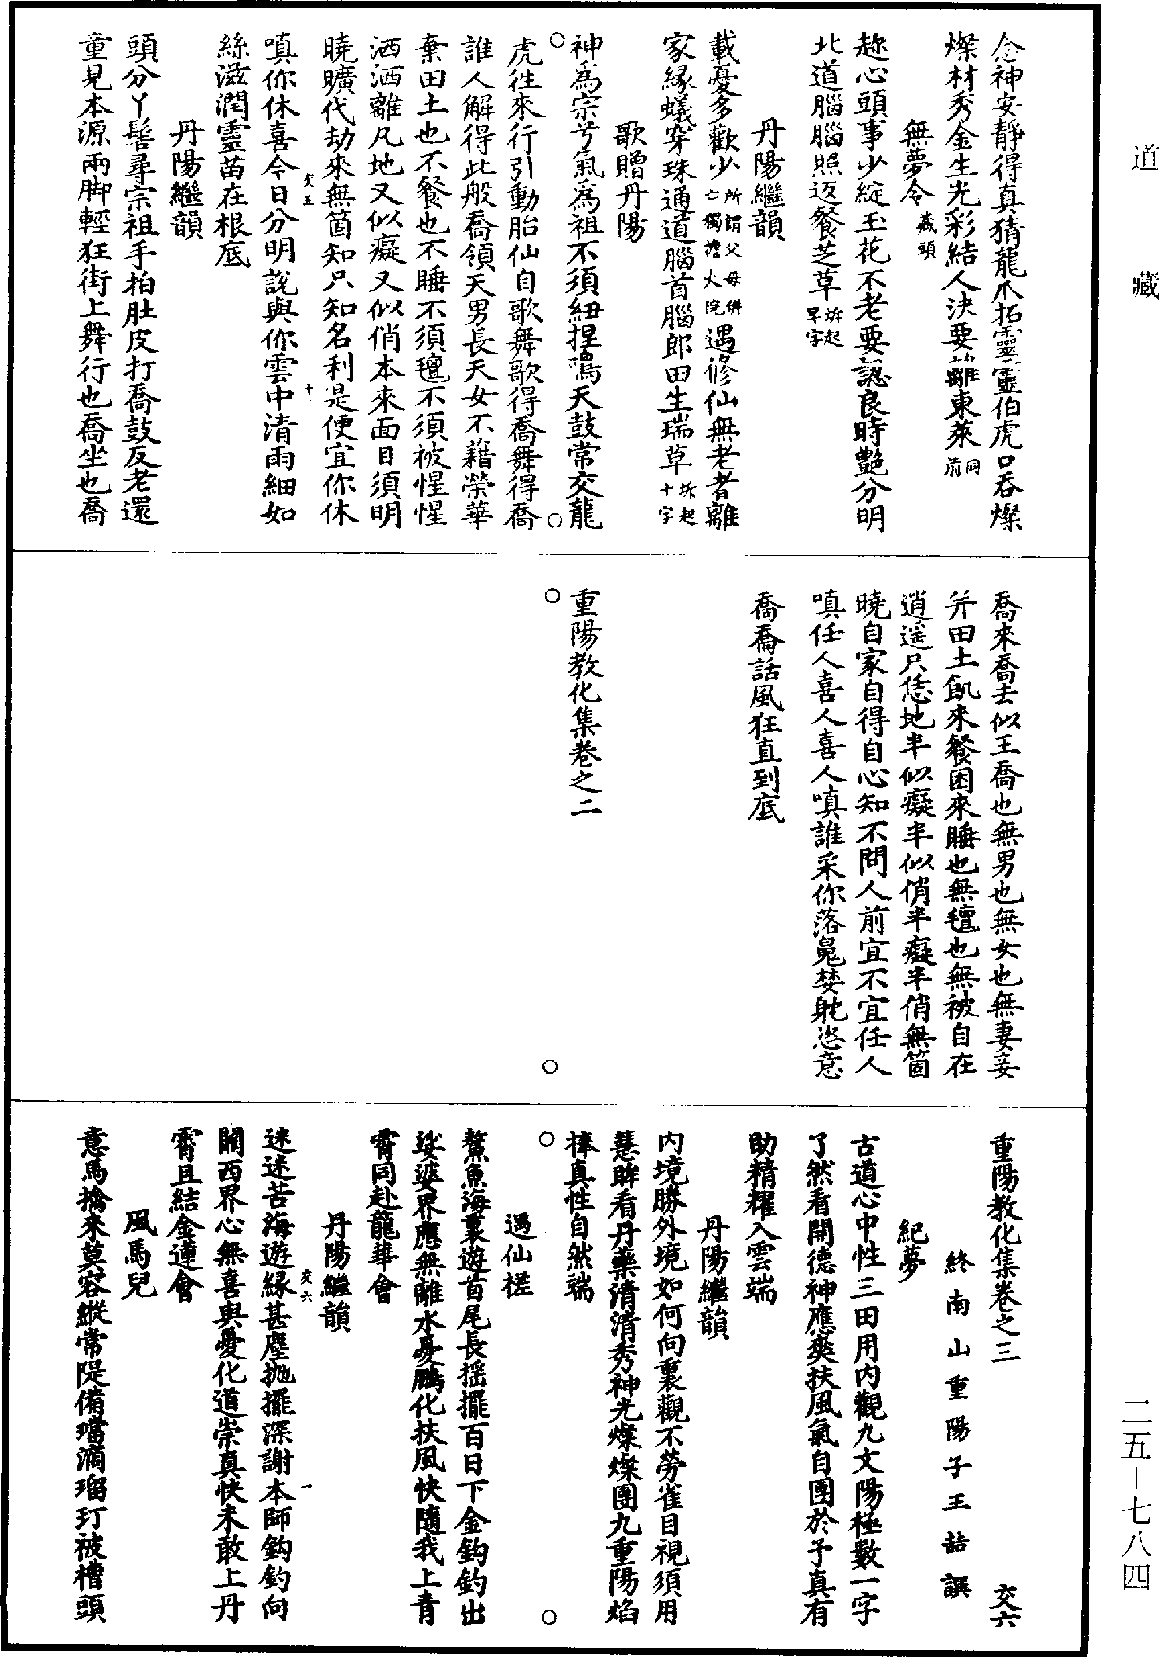 道藏
念神安靜得真猜龍爪拓靈靈伯虎口吞燦
燦材秀金生光彩結人決要離東萊同前
無夢令藏頭
趂心頭事少綻玉花不老要認良時艷分明
北道腦腦照返餐芝草拆起早字
丹陽繼韻
載憂多歡少所謂父母併亡獨擔火院遇修仙無老者離
家緣蟻穿珠通道腦首腦郎田生瑞草拆起十字
歌贈丹陽
神為宗兮氣為祖不須紐捏鳴天鼓常交龍
虎往來行引動胎仙自歌舞歌得喬舞得喬
誰人解得此般喬領天男長天女不藉榮華
棄田土也不餐也不睡不須氊不須被惺惺
洒洒離凡地又似癡又似俏本來面目須明
曉曠代劫來無箇知只知名利是便宜你休
嗔你休喜今日分明說與你雲中清雨細如
絲滋潤靈苗在根底
丹陽繼韻
頭分丫髻尋宗祖手拍肚皮打喬鼓反老還
童見本源兩脚輕狂街上舞行也喬坐也喬
喬來喬去似王喬也無男也無女也無妻妾
并田土飢來餐困來睡也無氊也無被自在
逍遥只恁地半似癡半似俏半癡半俏無箇
曉自家自得自心知不問人前宜不宜任人
嗔任人喜人喜人嗔誰采你落魄婪躭恣意
喬喬話風狂直到底
重陽教化集卷之二
重陽教化集卷之三 交六
終南山重陽子王嚞譔
紀夢
古道心中性三田用內觀九文陽極數一字
了然看開德神應爽扶風氣自團於予真有
助精耀入雲端
丹陽繼韻
內境勝外境如何向裏觀不勞雀目視須用
慧眸看丹藥清清秀神光燦燦團九重陽焰
捧真性自然端
遇仙槎
鰲魚海裏遊首尾長揺擺百日下金鈎釣出
娑婆界應無離水憂鵬化扶風快隨我上青
霄同赴龍華會
丹陽繼韻
迷迷苦海遊緣甚塵抛擺深謝本師鈎釣向
關西界心無喜與憂化道崇真快未敢上丹
霄且結金蓮會
風馬兒
意馬擒來莫容縱常隄備璫滴瑠玎被槽頭
二五—七八四